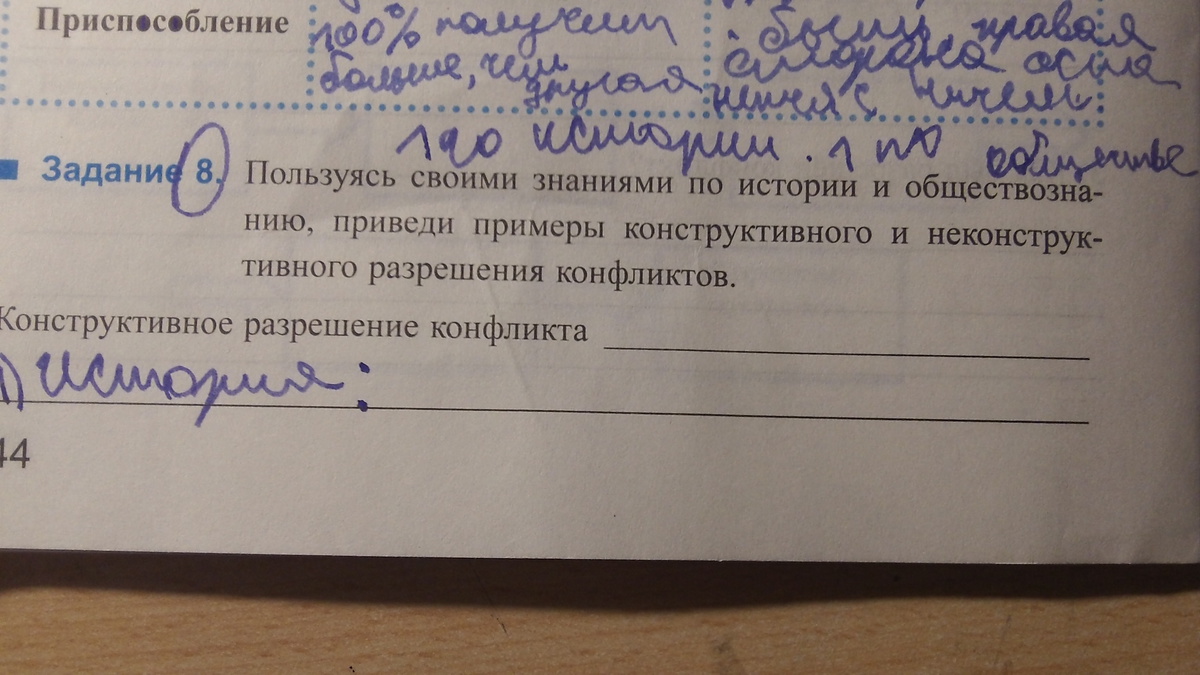 Приспособление
100% получит
больше, чем
другая
быть, правая
сторона оста
нется с ничем
1 по истории. 1 по обществе
Задание 8. Пользуясь своими знаниями по истории и обществозна-
нию, приведи примеры конструктивного и неконструк-
тивного разрешения конфликтов.
Конструктивное разрешение конфликта
1) История:
44